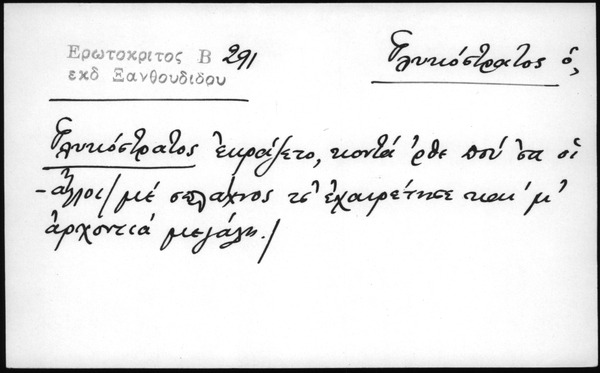 Ερωτοκριτος Β 291
εκδ Ξανθουδιδου
Γλυκόστρατος ὁ,
Γλυκόστρατος ἐκράζετο, κοντά ἦρθε πού 'σα οἱ
-ἄλλοι/ μέ σπλάχνος τσ' ἐχαιρέτησε και μ'
ἀρχοντιά μεγάλη./